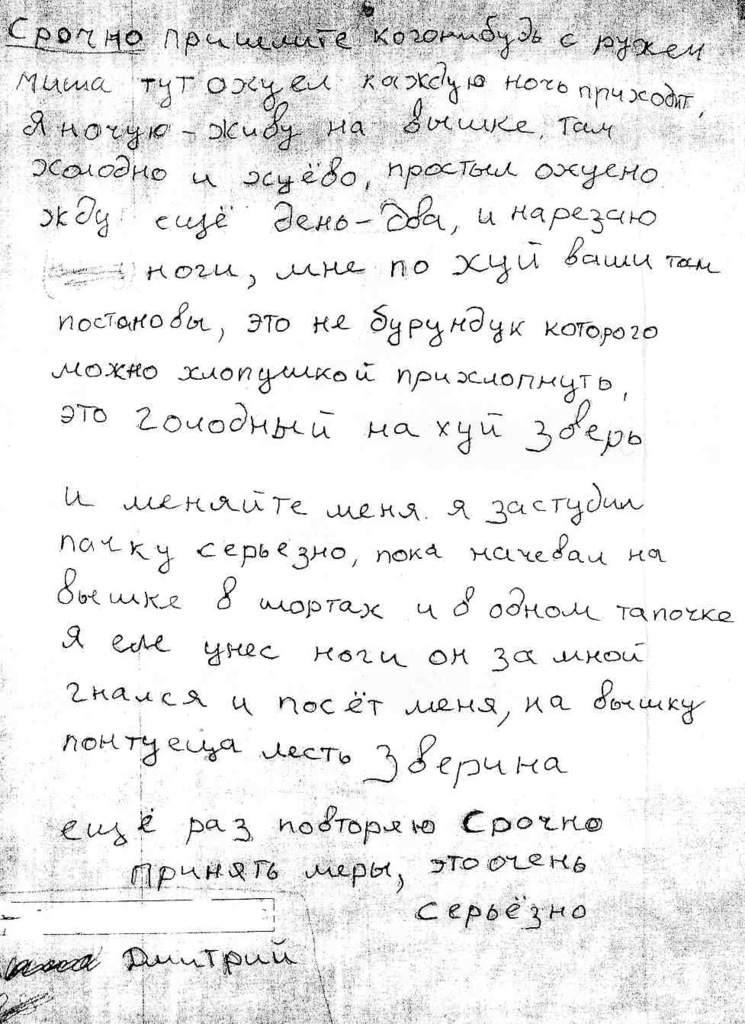 Срочно пришлите когонибудь с ружем
миша тут охуел каждую ночь приходит,
Я ночую-живу на вышке, там
холодно и хуёво, простыл охуено
жду ещё день-два, и нарезаю
ноги, мне по хуй ваши там
постановы, это не бурундук которого
можно хлопушкой прихлопнуть,
это голодный на хуй зверь
и меняйте меня. я застудил
пачку серьезно, пока начевал на
вышке в шортах и в одном тапочке
я еле унес ноги он за мной
гнался и посёт меня, на вышку
понтуеща лесть зверина
ещё раз повторяю Срочно
принять меры, это очень
серьёзно
Дмитрий